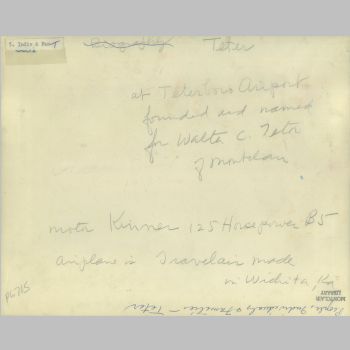 Teter
at Teterboro Airport
founded and named
for Walter C. Teter
of Montclair
motor Kinner 125 Horsepower B5
airplane is Travelair made
in Wichita, Ka
P6715
MONTCLAIR
LIBRARY
People, Individuals & Families - Teter